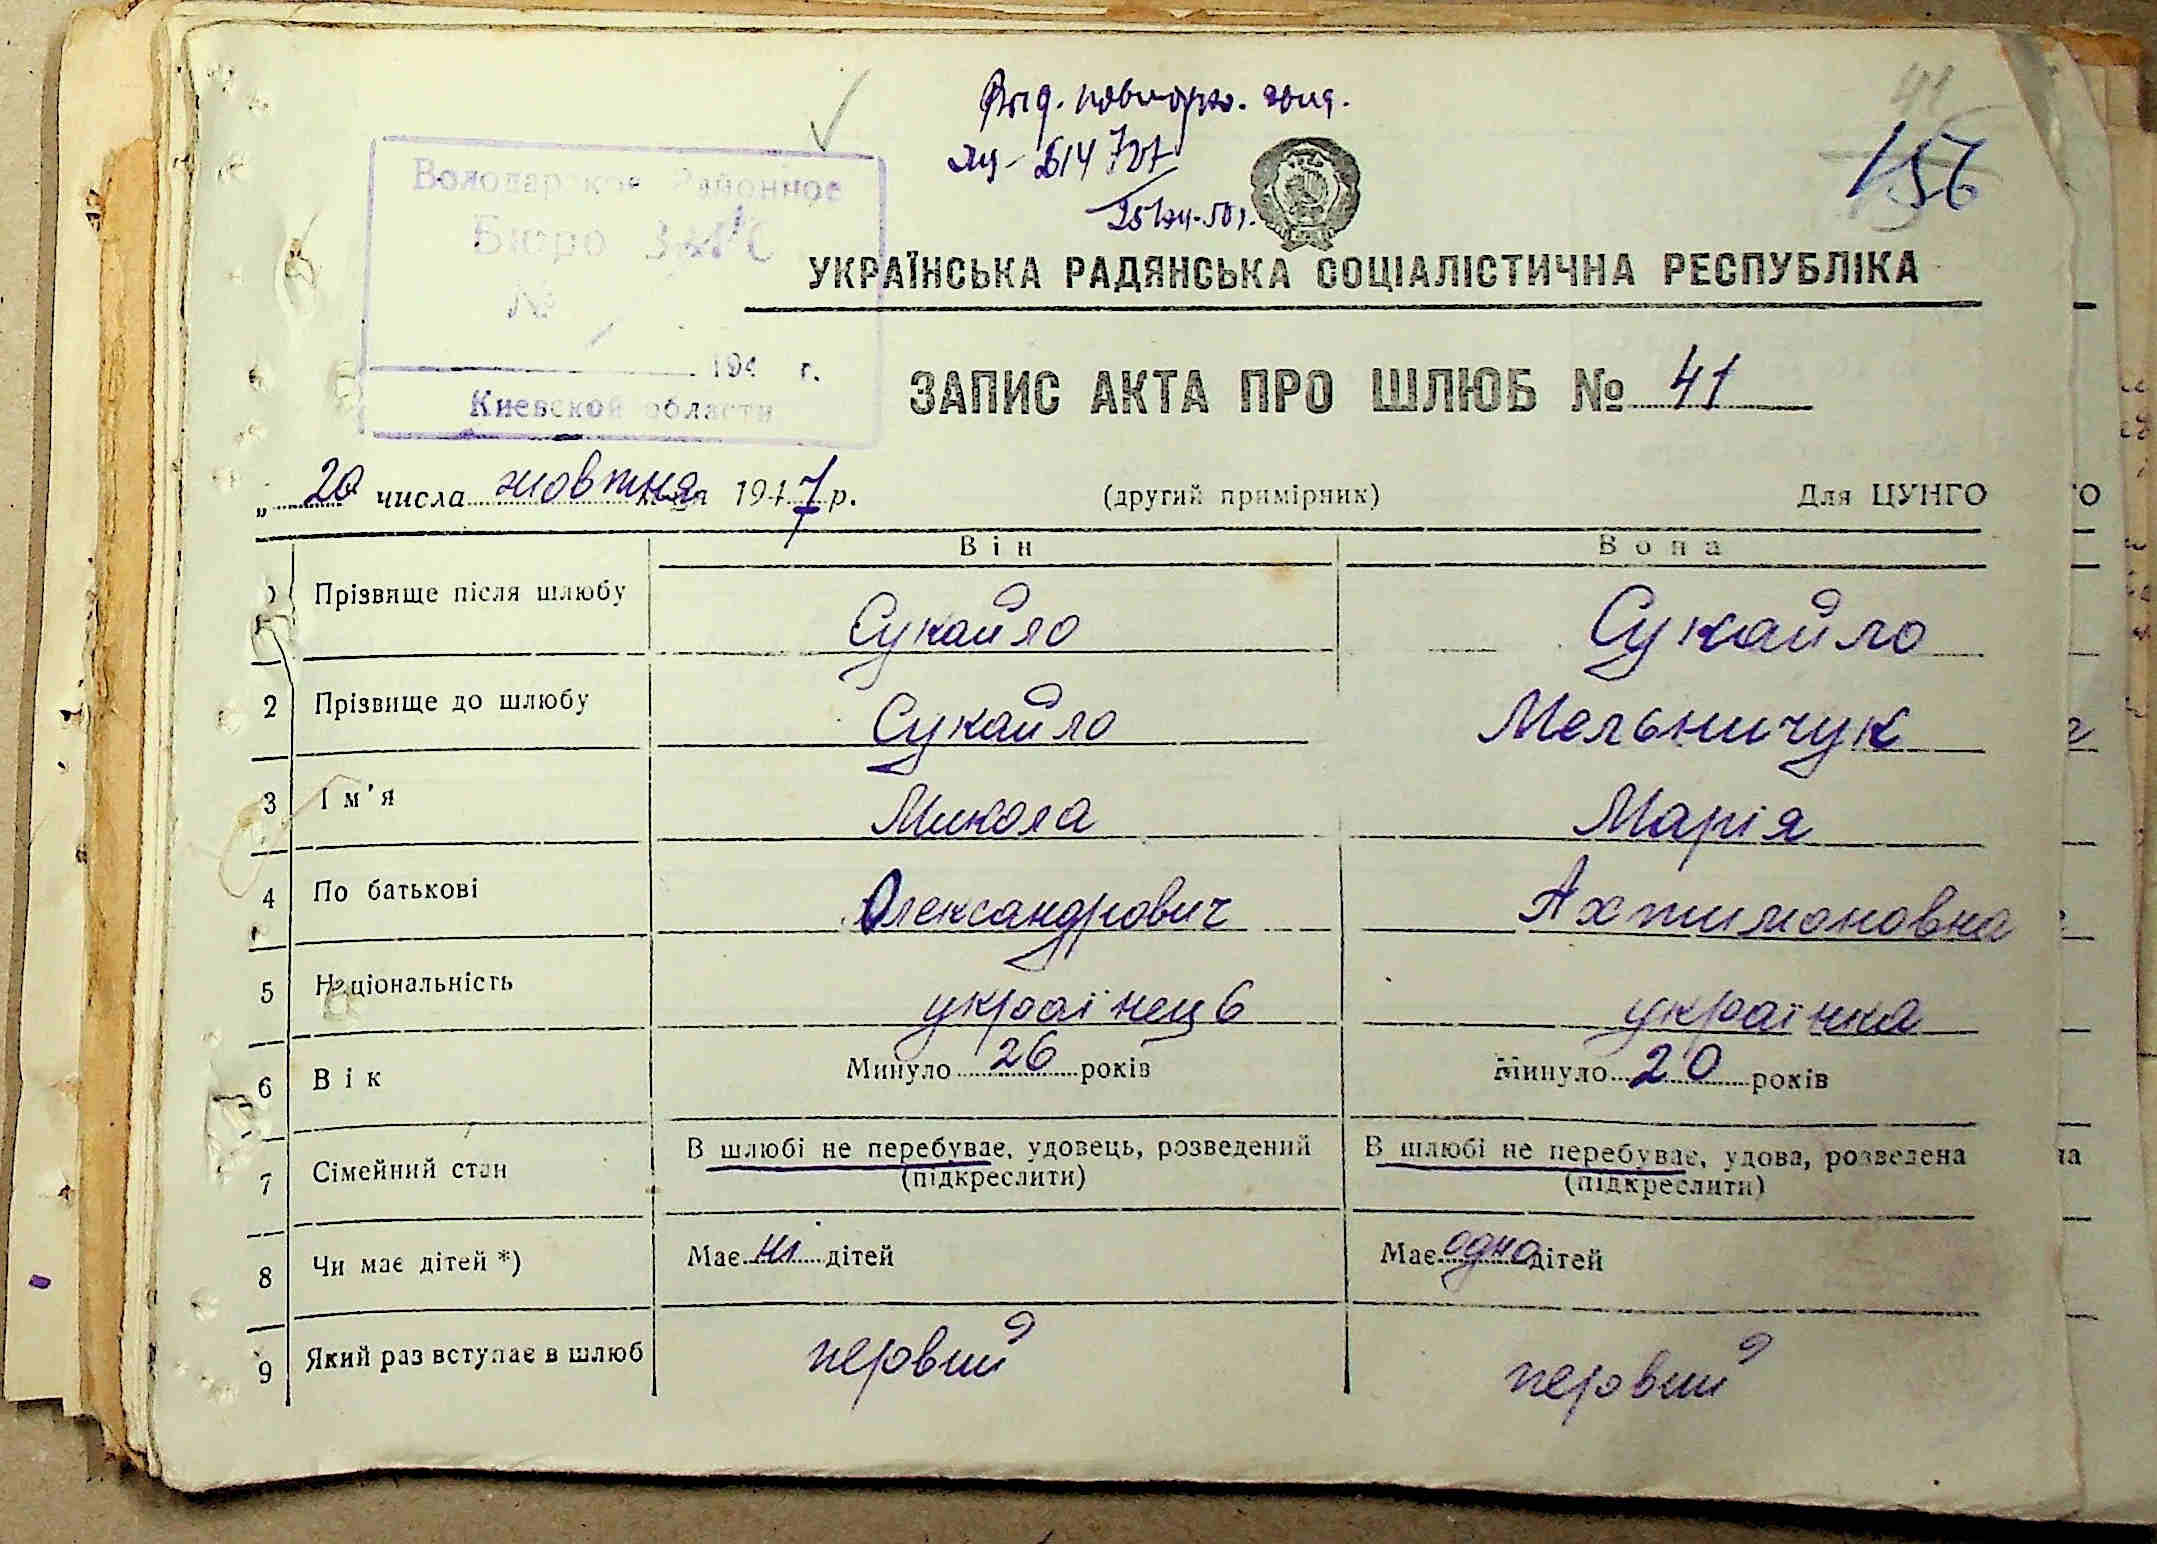 Вид. повторн.
41
156
Володарское Районное
Бюро ЗАГС
№
194 г.
Киевской области
УКРАЇНСЬКА РАДЯНСЬКА СОЦІАЛІСТИЧНА РЕСПУБЛІКА
ЗАПИС АКТА ПРО ШЛЮБ № 41
„ 20 числа жовтня 1947 р. (другий примірник) Для ЦУНГО
Він Вона
Прізвище після шлюбу Сукайло Сукайло
2 Прізвище до шлюбу Сукайло Мельничук
3 Ім'я Микола Марія
4 По батькові Олександрович Ахтимоновна
5 Національність українець українка
6 Вік Минуло 26 років Минуло 20 років
7 Сімейний стан В шлюбі не перебуває, удовець, розведений В шлюбі не перебуває, удова, розведена
(підкреслити) (підкреслити)
8 Чи має дітей *) Має ні дітей Має одно дітей
9 Який раз вступає в шлюб первий первий